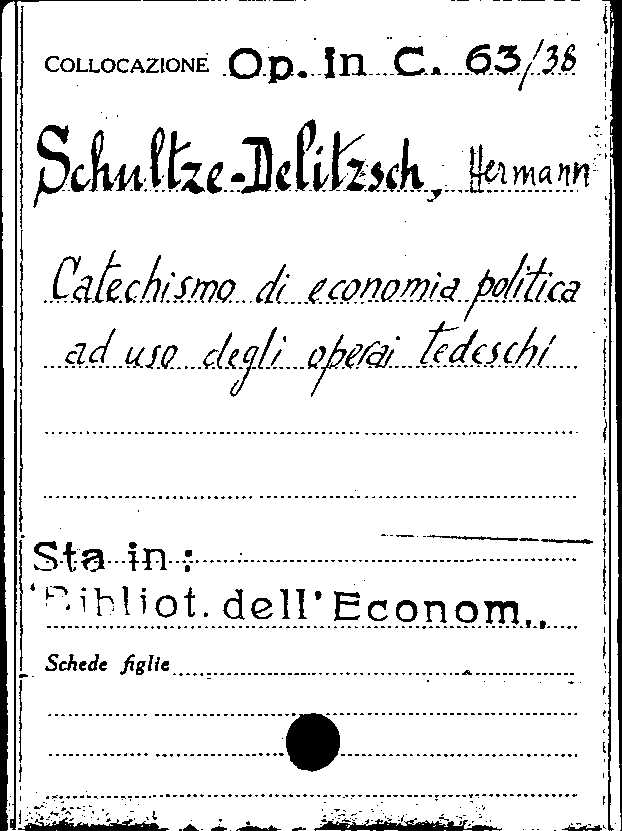 COLLOCAZIONE Op. in C. 63/38
Schultze-Delitzsch, Hermann
Catechismo di economia politica
ad uso degli operai tedeschi
Sta in:
"Bibliot. dell'Econom.„
Schede figlie